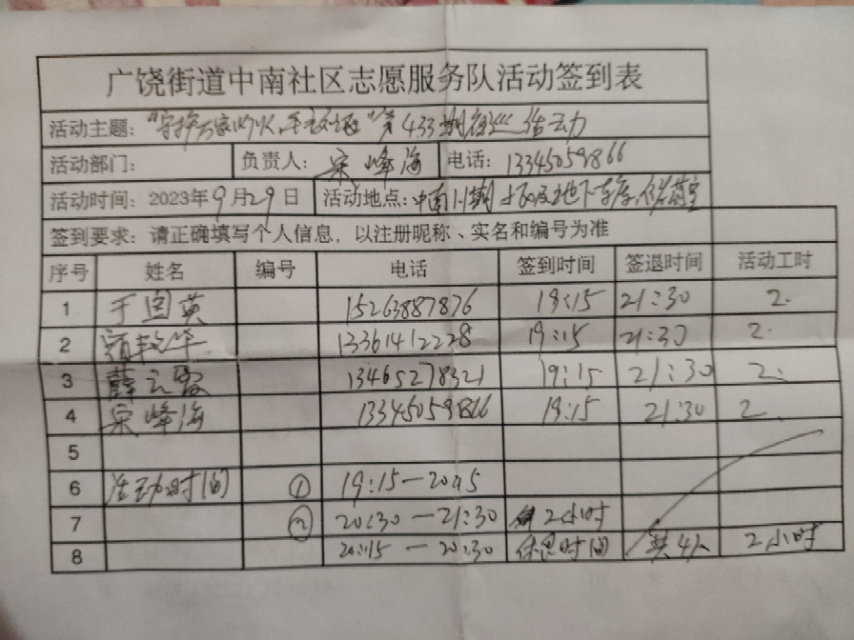 广饶街道中南社区志愿服务队活动签到表
活动主题: "守护万家灯火, 第433期夜巡活动
活动部门: 负责人: 宋峰海 电话: 13345059866
活动时间: 2023年9月29日 活动地点: 中南 地下车库
签到要求: 请正确填写个人信息, 以注册昵称、实名和编号为准
序号 姓名 编号 电话 签到时间 签退时间 活动工时
1 于国英 15263887876 19:15 21:30 2.
2 13361412228 19:15 21:30 2.
3 薛 13465278321 19:15 21:30 2.
4 宋峰海 13345059866 19:15 21:30 2.
5
6 活动时间 ① 19:15-20:15
7 ② 20:30-21:30 2小时
8 20:15-20:30 休息时间 共4人 2小时